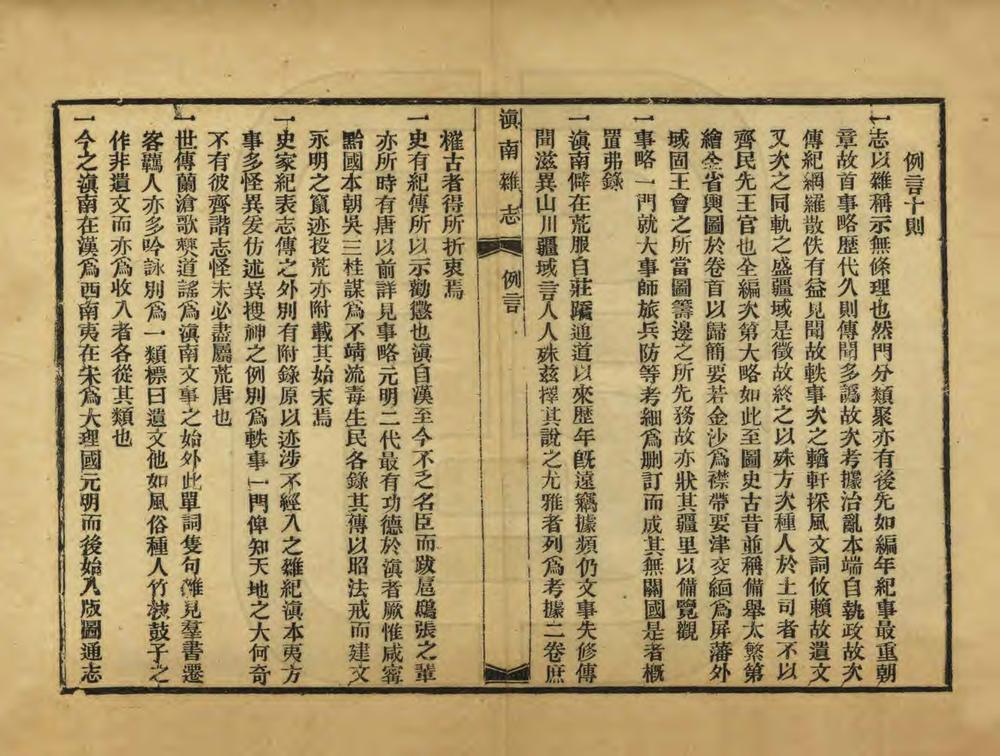 例言十則
一志以雜稱示無條理也然門分類聚亦有後先如編年紀事最重朝
章故首事略歷代久則傳聞多譌故次考據治亂本端自執政故次
傳紀網羅散佚有益見聞故軼事次之輶軒採風文詞攸賴故遺文
又次之同軌之盛疆域是徵故終之以殊方次種人於土司者不以
齊民先王官也全編次第大略如此至圖史古昔並稱備舉太繁第
繪全省輿圖於卷首以歸簡要若金沙爲襟帶要津交緬爲屏藩外
域固王會之所當圖籌邊之所先務故亦狀其疆里以備覽觀
一事略一門就大事師旅兵防等考細爲删訂而成其無關國是者概
置弗錄
一滇南僻在荒服自莊蹻通道以來歷年旣遠竊據頻仍文事失修傳
聞滋異山川疆域言人人殊茲擇其說之尤雅者列爲考據二卷庶
滇南雜志 例言
榷古者得所折衷焉
一史有紀傳所以示勸懲也滇自漢至今不乏名臣而跋扈鴟張之輩
亦所時有唐以前詳見事略元明二代最有功德於滇者厥惟咸寗
黔國本朝吳三桂謀爲不靖流毒生民各錄其傳以昭法戒而建文
永明之竄迹投荒亦附載其始末焉
一史家紀表志傳之外別有附錄原以迹涉不經入之雜紀滇本夷方
事多怪異爰仿述異搜神之例別爲軼事一門俾知天地之大何奇
不有彼齊諧志怪未必盡屬荒唐也
一世傳蘭滄歌僰道謠爲滇南文事之始外此單詞隻句雜見羣書遷
客羈人亦多吟詠別爲一類標曰遺文他如風俗種人竹枝鼓子之
作非遺文而亦爲收入者各從其類也
一今之滇南在漢爲西南夷在宋爲大理國元明而後始入版圖通志